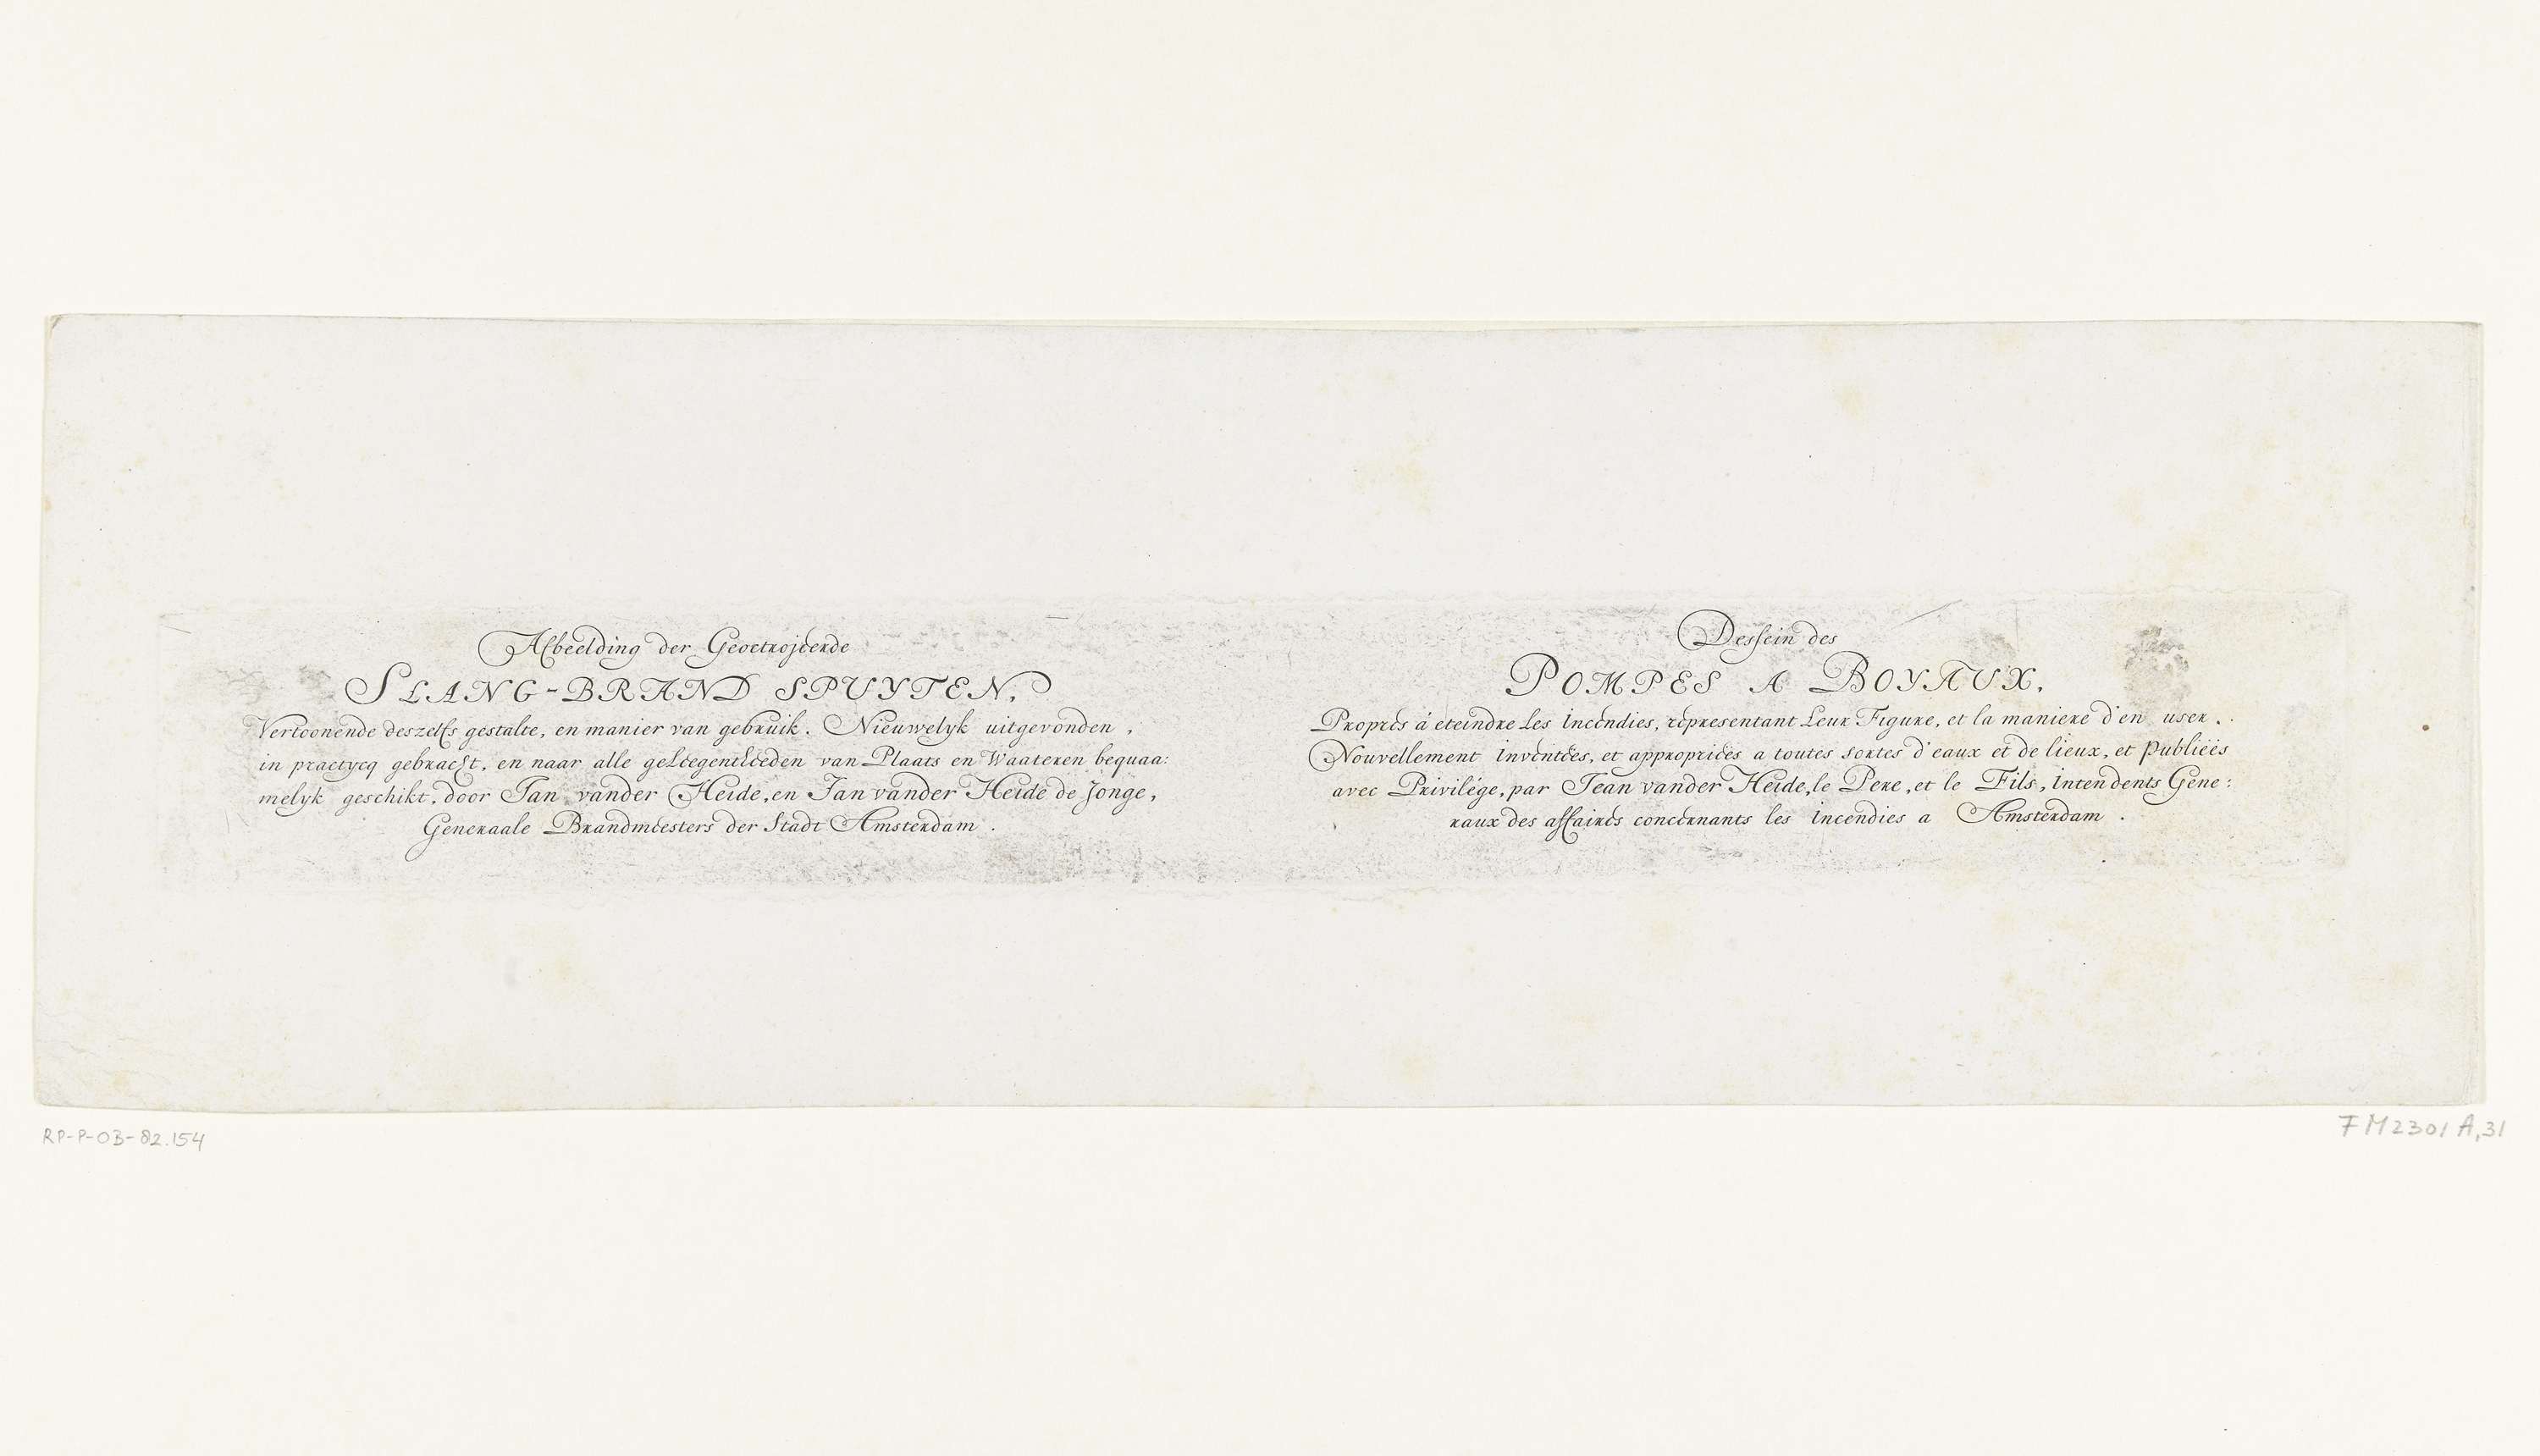 Afbeelding der Geoctrojeerde
SLANG-BRAND SPUYTEN,
Vertoonende deszelfs gestalte, en manier van gebruik. Nieuwelyk uitgevonden,
in practycq gebracht, en naar alle geleegentheeden van Plaats en Waateren bequaa:
melyk geschikt, door Jan vander Heide, en Jan vander Heide de Jonge,
Generaale Brandmeesters der Stadt Amsterdam.
Dessein des
POMPES A BOYAUX,
Propres á eteindre Les incendies, representant Leur Figure, et la maniere d'en user.
Nouvellement inventées, et appropriées a toutes sortes d'eaux et de lieux, et publiées
avec Privilége, par Jean vander Heide, le Pere, et le Fils, intendents Gene:
raux des affaires concernants les incendies a Amsterdam.
RP-P-OB-82.154
FM2301A,31